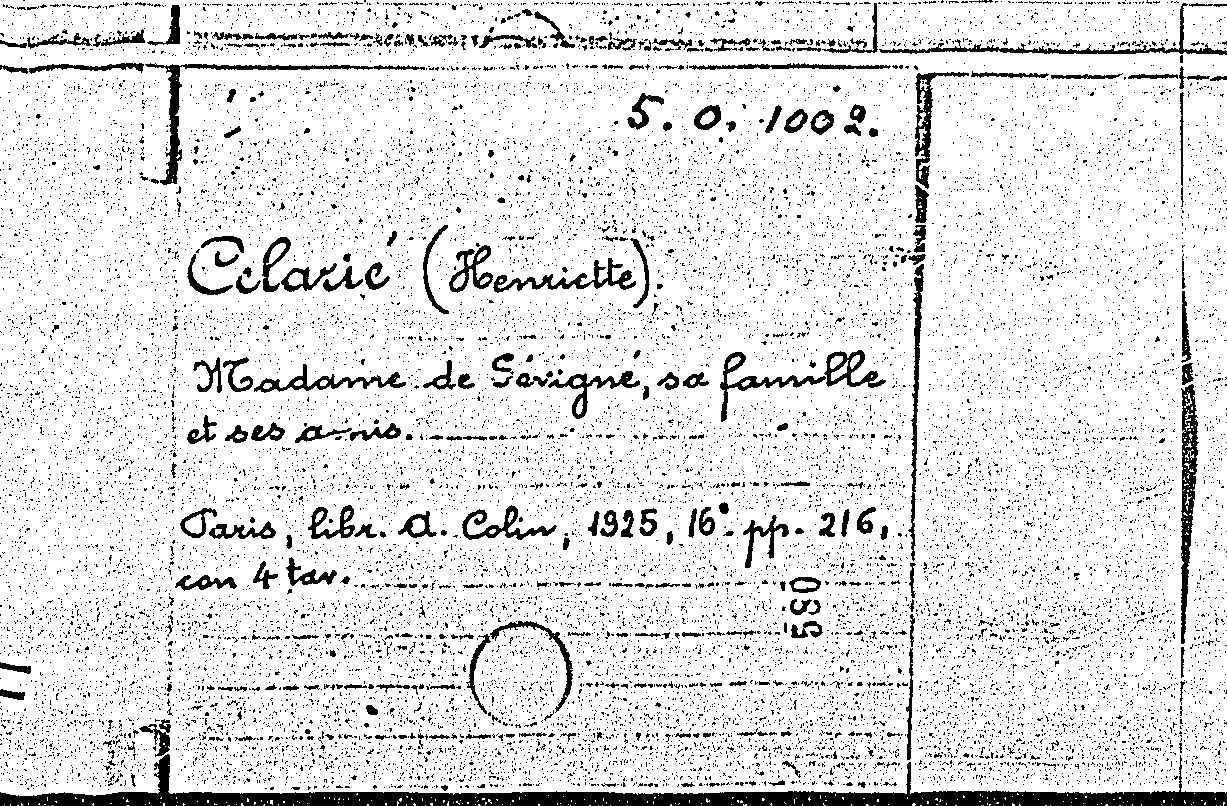 5. O. 1002.
Celarié (Henriette).
Madame de Sévigné, sa famille
et ses amis.
Paris, libr. A. Colin, 1925, 16° pp. 216,
con 4 tav.
580